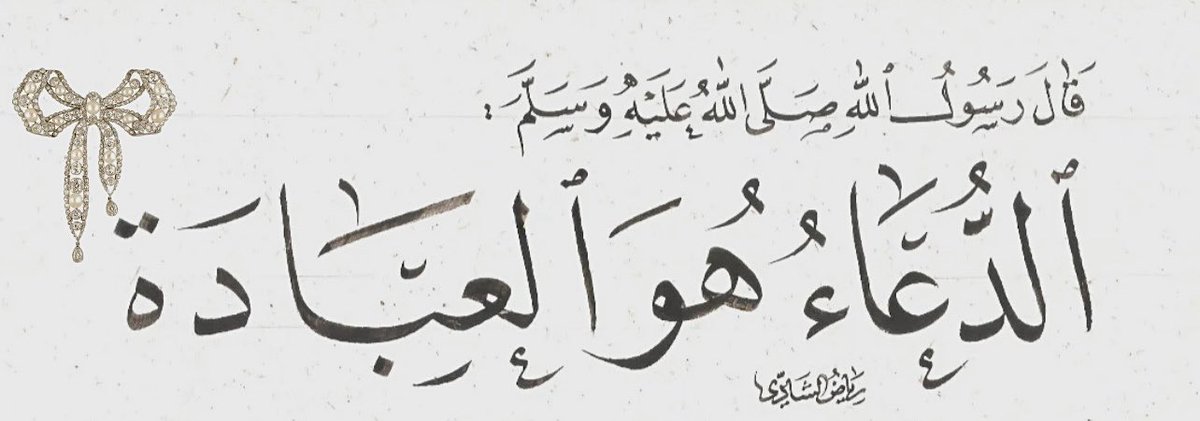 قَالَ رَسُولُ ٱللهِ صَلَّى اللهُ عَلَيْهِ وَسَلَّمَ:
ٱلدُّعَاءُ هُوَ ٱلْعِبَادَة
رياض